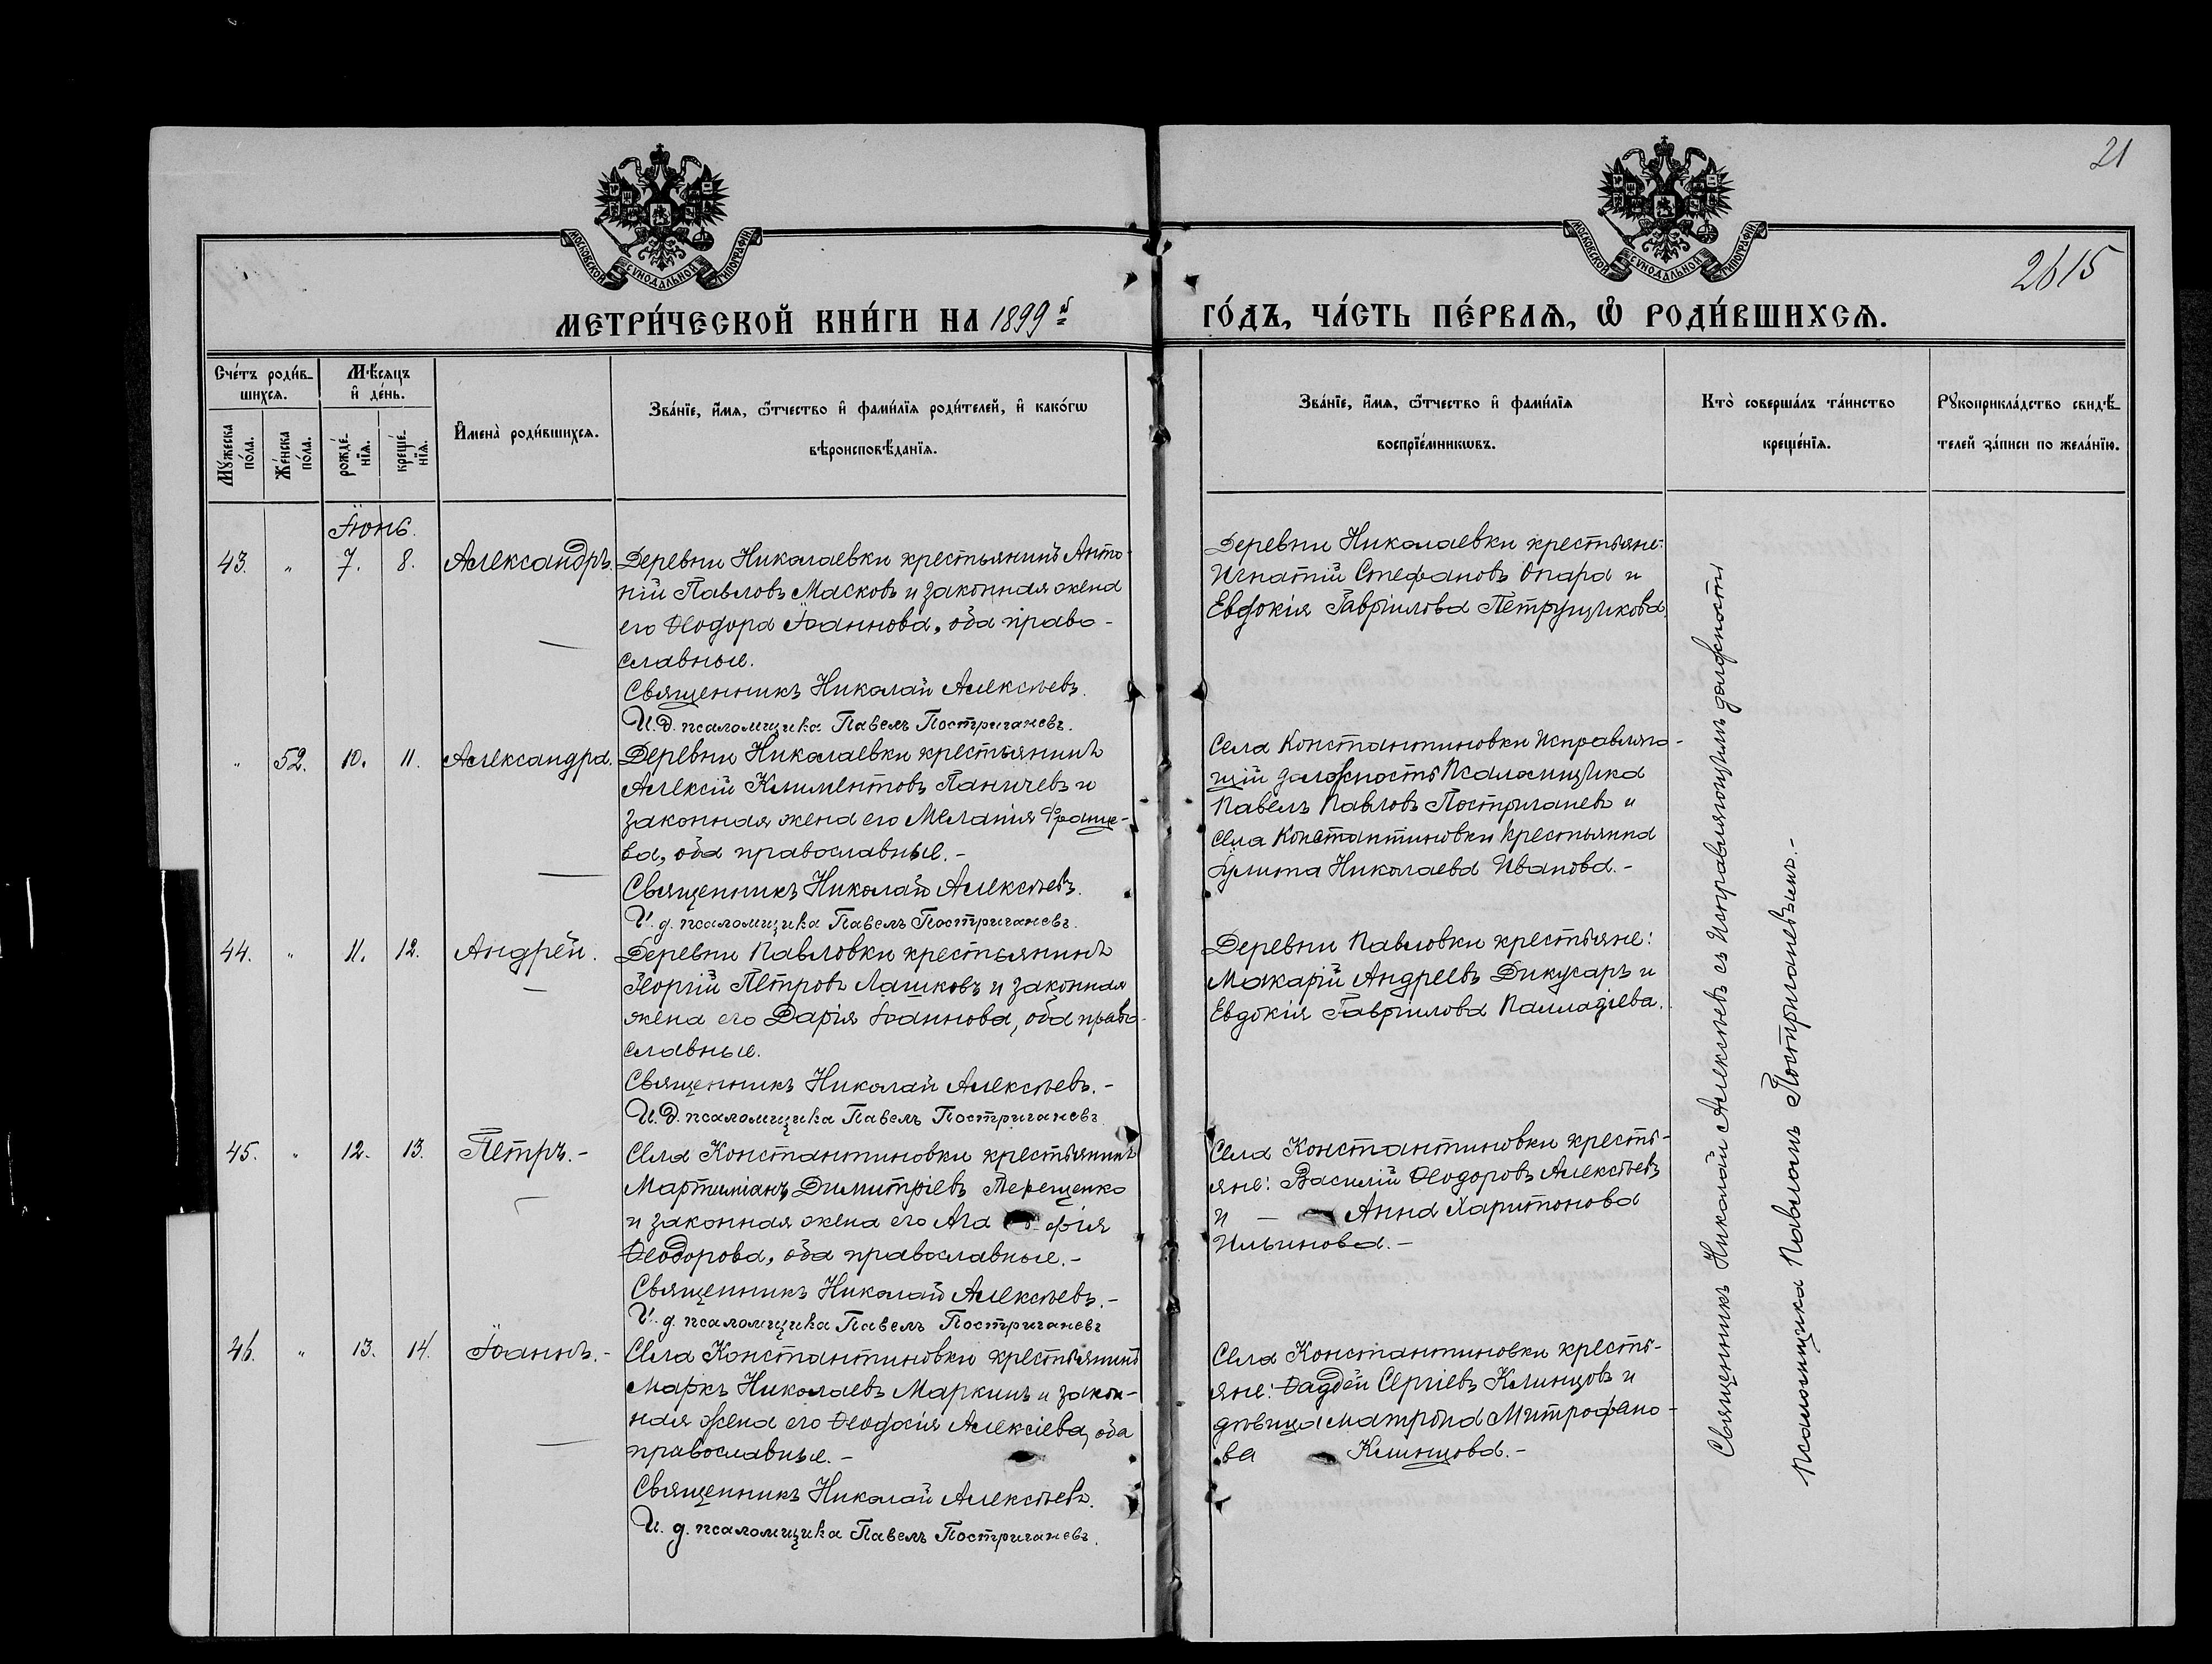 21
2615
МОСКОВСКОЙ СѴНОДАЛЬНОЙ ТИПОГРАФІИ
МОСКОВСКОЙ СѴНОДАЛЬНОЙ ТИПОГРАФІИ
МЕТРИ́ЧЕСКОЙ КНИ́ГИ НА 1899й
ГО́ДЪ, ЧА́СТЬ ПЕ́РВАѦ, Ѡ҆ РОДИ́ВШИХСѦ.
Сче́тъ роди́в-
шихсѧ.
Мꙋ́жеска по́ла.
Же́нска по́ла.
Мѣ́сѧцъ
и҆ де́нь.
рожде́-нїѧ.
креще́-нїѧ.
И҆мена̀ роди́вшихсѧ.
Зва́нїе, и҆́мѧ, ѻ҆́тчество и҆ фами́лїѧ роди́телей, и҆ како́гѡ
вѣроисповѣ́данїѧ.
Зва́нїе, и҆́мѧ, ѻ҆́тчество и҆ фами́лїѧ
воспрїе́мникѡвъ.
Кто̀ соверша́лъ та́инство
креще́нїѧ.
Рꙋкоприкла́дство свидѣ́-
телей за́писи по жела́нїю.
Іюнь.
43. " 7. 8. Александръ.
Деревни Николаевки крестьянинъ Анто-
ній Павловъ Масковъ и законная жена
его Ѳеодора Іоаннова, оба право-
славные.
Священникъ Николай Алексѣевъ.
И.д. псаломщика Павелъ Постригачевъ.
Деревни Николаевки крестьяне:
Игнатій Стефановъ Опара и
Евдокія Гавріилова Петрущикова.
" 52. 10. 11. Александра.
Деревни Николаевки крестьянинъ
Алексій Климентовъ Паничевъ и
законная жена его Меланія
ва, оба православные.-
Священникъ Николай Алексѣевъ.
И.д. псаломщика Павелъ Постригачевъ.
Села Константиновки Исправляю-
щій должность Псаломщика
Павелъ Павловъ Постригачевъ и
села Константиновки крестьянка
Іулита Николаева Иванова.-
44. " 11. 12. Андрей.
Деревни Павловки крестьянинъ
Георгій Петровъ Лашковъ и законная
жена его Дарія Іоаннова, оба право-
славные.
Священникъ Николай Алексѣевъ.-
И.д. псаломщика Павелъ Постригачевъ.
Деревни Павловки крестьяне:
Макарій Андреевъ Дикусаръ и
Евдокія Гавріилова Палладіева.
45. " 12. 13. Петръ.-
Села Константиновки крестьянинъ
Мартиніанъ Димитріевъ Терещенко
и законная жена его Ага фія
Ѳеодорова, оба православные.-
Священникъ Николай Алексѣевъ.-
И.д. псаломщика Павелъ Постригачевъ
Села Константиновки кресть-
яне: Василій Ѳеодоровъ Алексѣевъ
и - Анна Харитонова
Ильинова.-
46. " 13. 14. Іоаннъ.-
Села Константиновки крестьянинъ
Маркъ Николаевъ Маркинъ и закон-
ная жена его Ѳеодосія Алексіева, оба
православные.-
Священникъ Николай Алексѣевъ.
И.д. псаломщика Павелъ Постригачевъ.
Села Константиновки кресть-
яне: Ѳаддей Сергіевъ Клинцовъ и
дѣвица Матрона Митрофано-
ва Клинцова.-
Священникъ Николай Алексѣевъ съ Исправляющимъ должность
псаломщика Павломъ Постригачевымъ.-